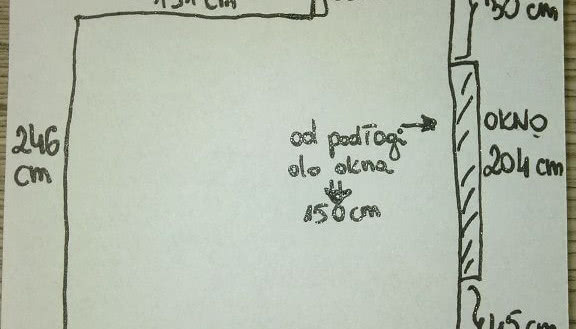 cm
30 cm
246
cm
od podłogi
do okna
150 cm
OKNO
204 cm
45 cm